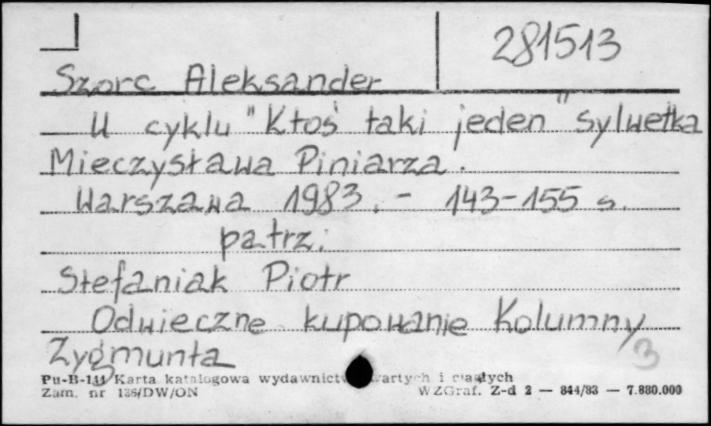 281513
Szorc Aleksander
W cyklu "Ktoś taki jeden" sylwetka
Mieczysława Piniarza.
Warszawa 1983. - 143-155 s.
patrz:
Stefaniak Piotr
Odwieczne kupowanie Kolumny
Zygmunta
3
Pu-B-141 Karta katalogowa wydawnictw zwartych i ciągłych
Zam. nr 136/DW/ON WZGraf. Z-d 2 — 844/83 — 7.880.000